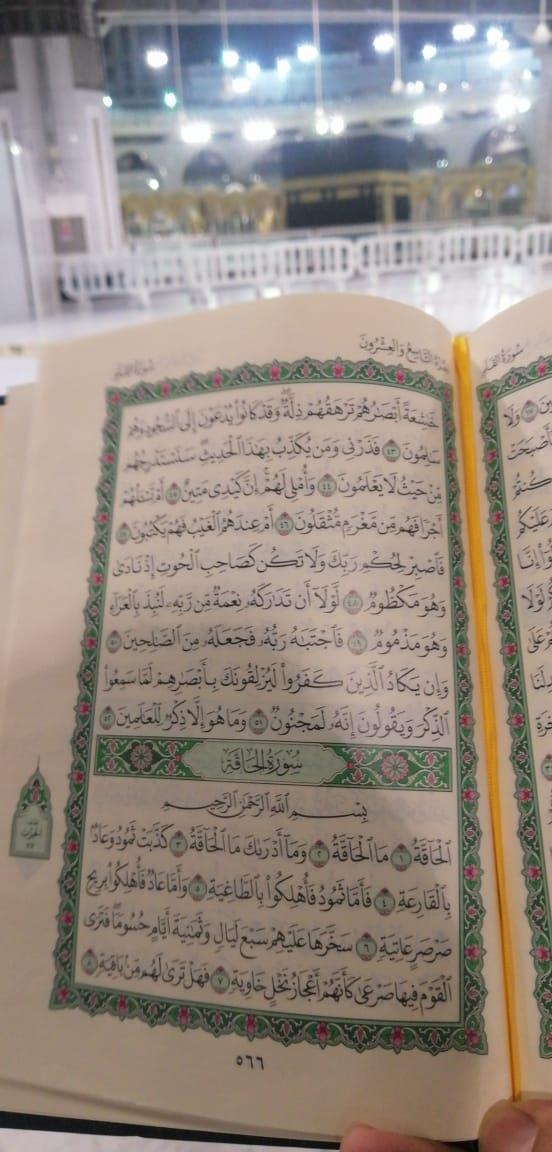 سُورَةُ القَلَمِ
الجُزْءُ التَّاسِعُ وَالعِشْرُونَ
خَٰشِعَةً أَبْصَٰرُهُمْ تَرْهَقُهُمْ ذِلَّةٌۖ وَقَدْ كَانُوا۟ يُدْعَوْنَ إِلَى ٱلسُّجُودِ وَهُمْ
سَٰلِمُونَ ٤٣ فَذَرْنِى وَمَن يُكَذِّبُ بِهَٰذَا ٱلْحَدِيثِۖ سَنَسْتَدْرِجُهُم
مِّنْ حَيْثُ لَا يَعْلَمُونَ ٤٤ وَأُمْلِى لَهُمْۚ إِنَّ كَيْدِى مَتِينٌ ٤٥ أَمْ تَسْـَٔلُهُمْ
أَجْرًا فَهُم مِّن مَّغْرَمٍ مُّثْقَلُونَ ٤٦ أَمْ عِندَهُمُ ٱلْغَيْبُ فَهُمْ يَكْتُبُونَ ٤٧
فَٱصْبِرْ لِحُكْمِ رَبِّكَ وَلَا تَكُن كَصَاحِبِ ٱلْحُوتِ إِذْ نَادَىٰ
وَهُوَ مَكْظُومٌ ٤٨ لَّوْلَآ أَن تَدَٰرَكَهُۥ نِعْمَةٌ مِّن رَّبِّهِۦ لَنُبِذَ بِٱلْعَرَآءِ
وَهُوَ مَذْمُومٌ ٤٩ فَٱجْتَبَٰهُ رَبُّهُۥ فَجَعَلَهُۥ مِنَ ٱلصَّٰلِحِينَ ٥٠
وَإِن يَكَادُ ٱلَّذِينَ كَفَرُوا۟ لَيُزْلِقُونَكَ بِأَبْصَٰرِهِمْ لَمَّا سَمِعُوا۟
ٱلذِّكْرَ وَيَقُولُونَ إِنَّهُۥ لَمَجْنُونٌ ٥١ وَمَا هُوَ إِلَّا ذِكْرٌ لِّلْعَٰلَمِينَ ٥٢
سُورَةُ الحَاقَّةِ
بِسْمِ ٱللَّهِ ٱلرَّحْمَٰنِ ٱلرَّحِيمِ
ٱلْحَآقَّةُ ١ مَا ٱلْحَآقَّةُ ٢ وَمَآ أَدْرَىٰكَ مَا ٱلْحَآقَّةُ ٣ كَذَّبَتْ ثَمُودُ وَعَادٌۢ
بِٱلْقَارِعَةِ ٤ فَأَمَّا ثَمُودُ فَأُهْلِكُوا۟ بِٱلطَّاغِيَةِ ٥ وَأَمَّا عَادٌ فَأُهْلِكُوا۟ بِرِيحٍ
صَرْصَرٍ عَاتِيَةٍ ٦ سَخَّرَهَا عَلَيْهِمْ سَبْعَ لَيَالٍ وَثَمَٰنِيَةَ أَيَّامٍ حُسُومًاۖ فَتَرَى
ٱلْقَوْمَ فِيهَا صَرْعَىٰ كَأَنَّهُمْ أَعْجَازُ نَخْلٍ خَاوِيَةٍ ٧ فَهَلْ تَرَىٰ لَهُم مِّنۢ بَاقِيَةٍ ٨
٥٦٦
سُورَةُ القَلَمِ